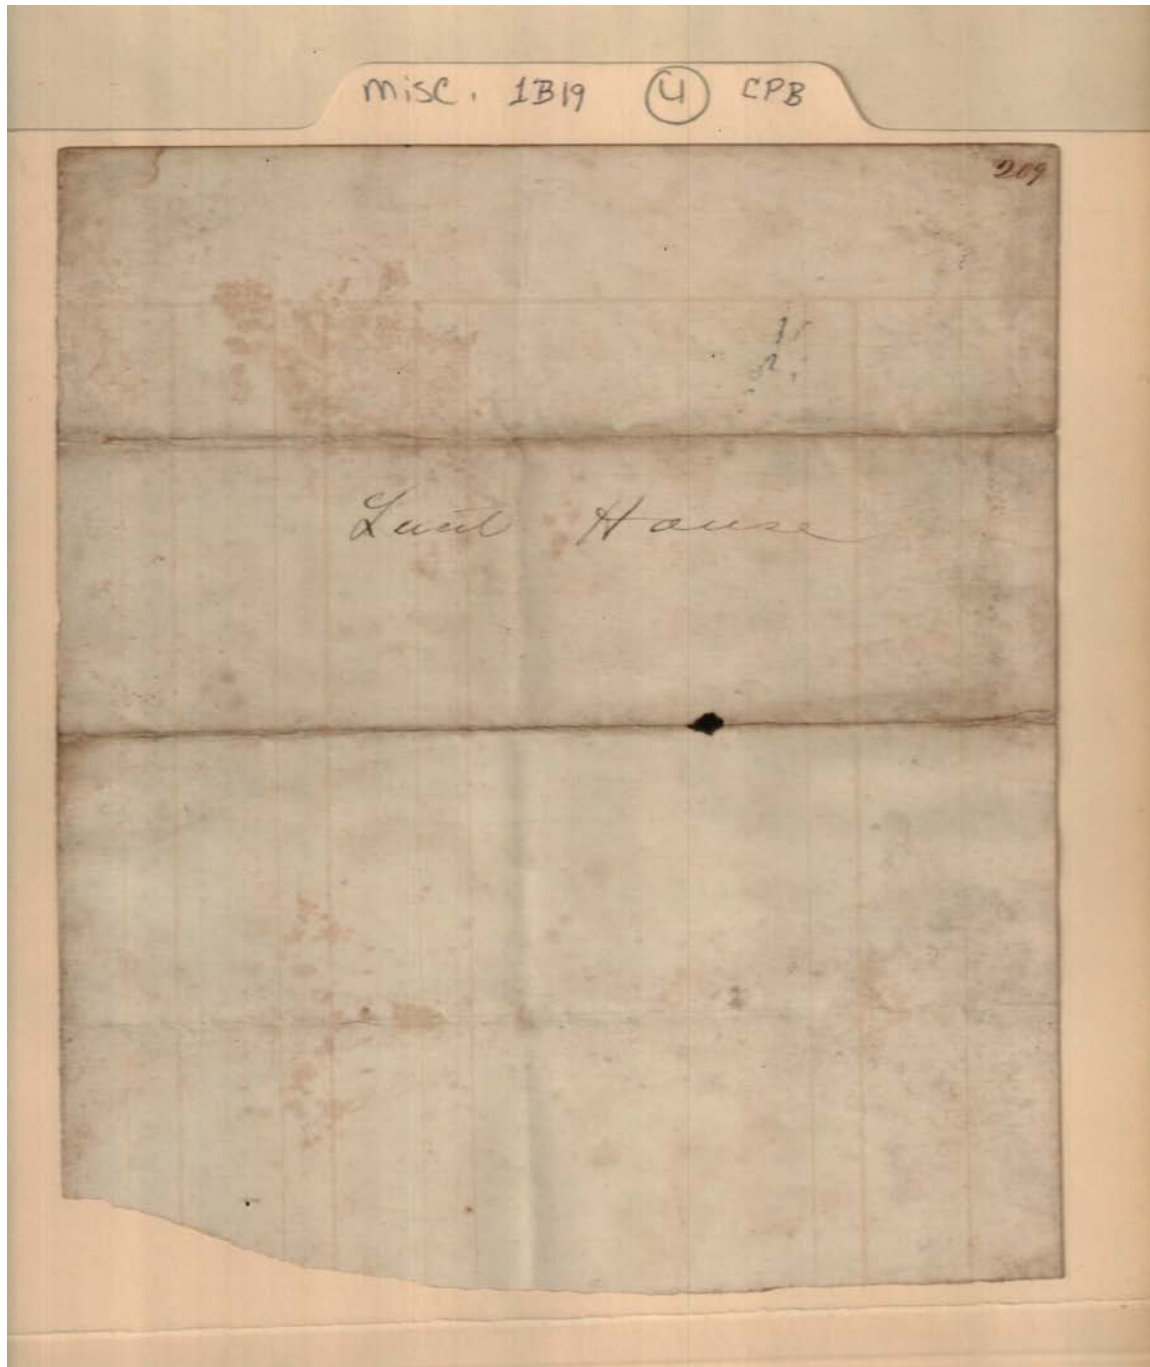 misc. 1B19 4 CPB
209
House